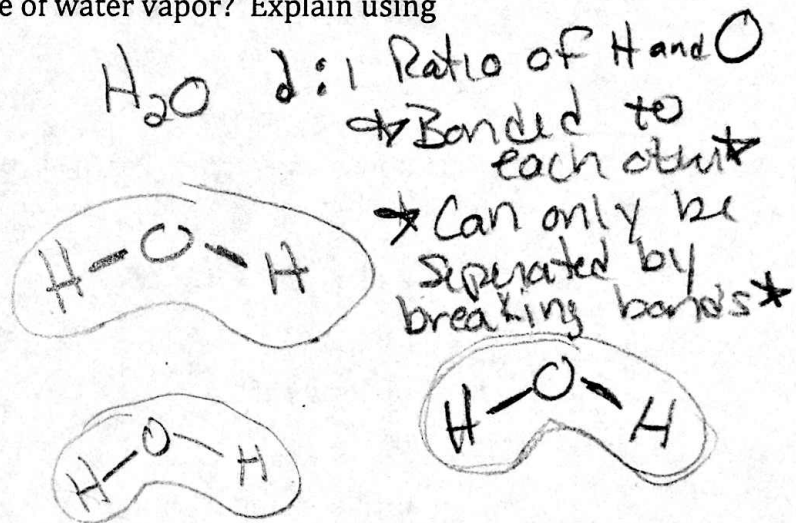 e of water vapor? Explain using
H₂O 2:1 Ratio of H and O
*Bonded to
each other*
*Can only be
seperated by
breaking bonds*
H-O-H
H-O-H
H-O-H